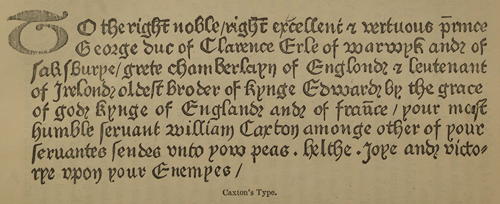 TO the right noble/right excellent & vertuous prince
George duc of Clarence Erle of warwyk and of
salisburye/grete chamberlayn of Englond & leutenant
of Irelond oldest broder of kynge Edward by the grace
of god kynge of England and of france/your most
humble servant william Caxton amonge other of your
servantes sendes vnto yow peas. helthe. Joye and victo-
rye vpon your Enemyes/
Caxton's Type.